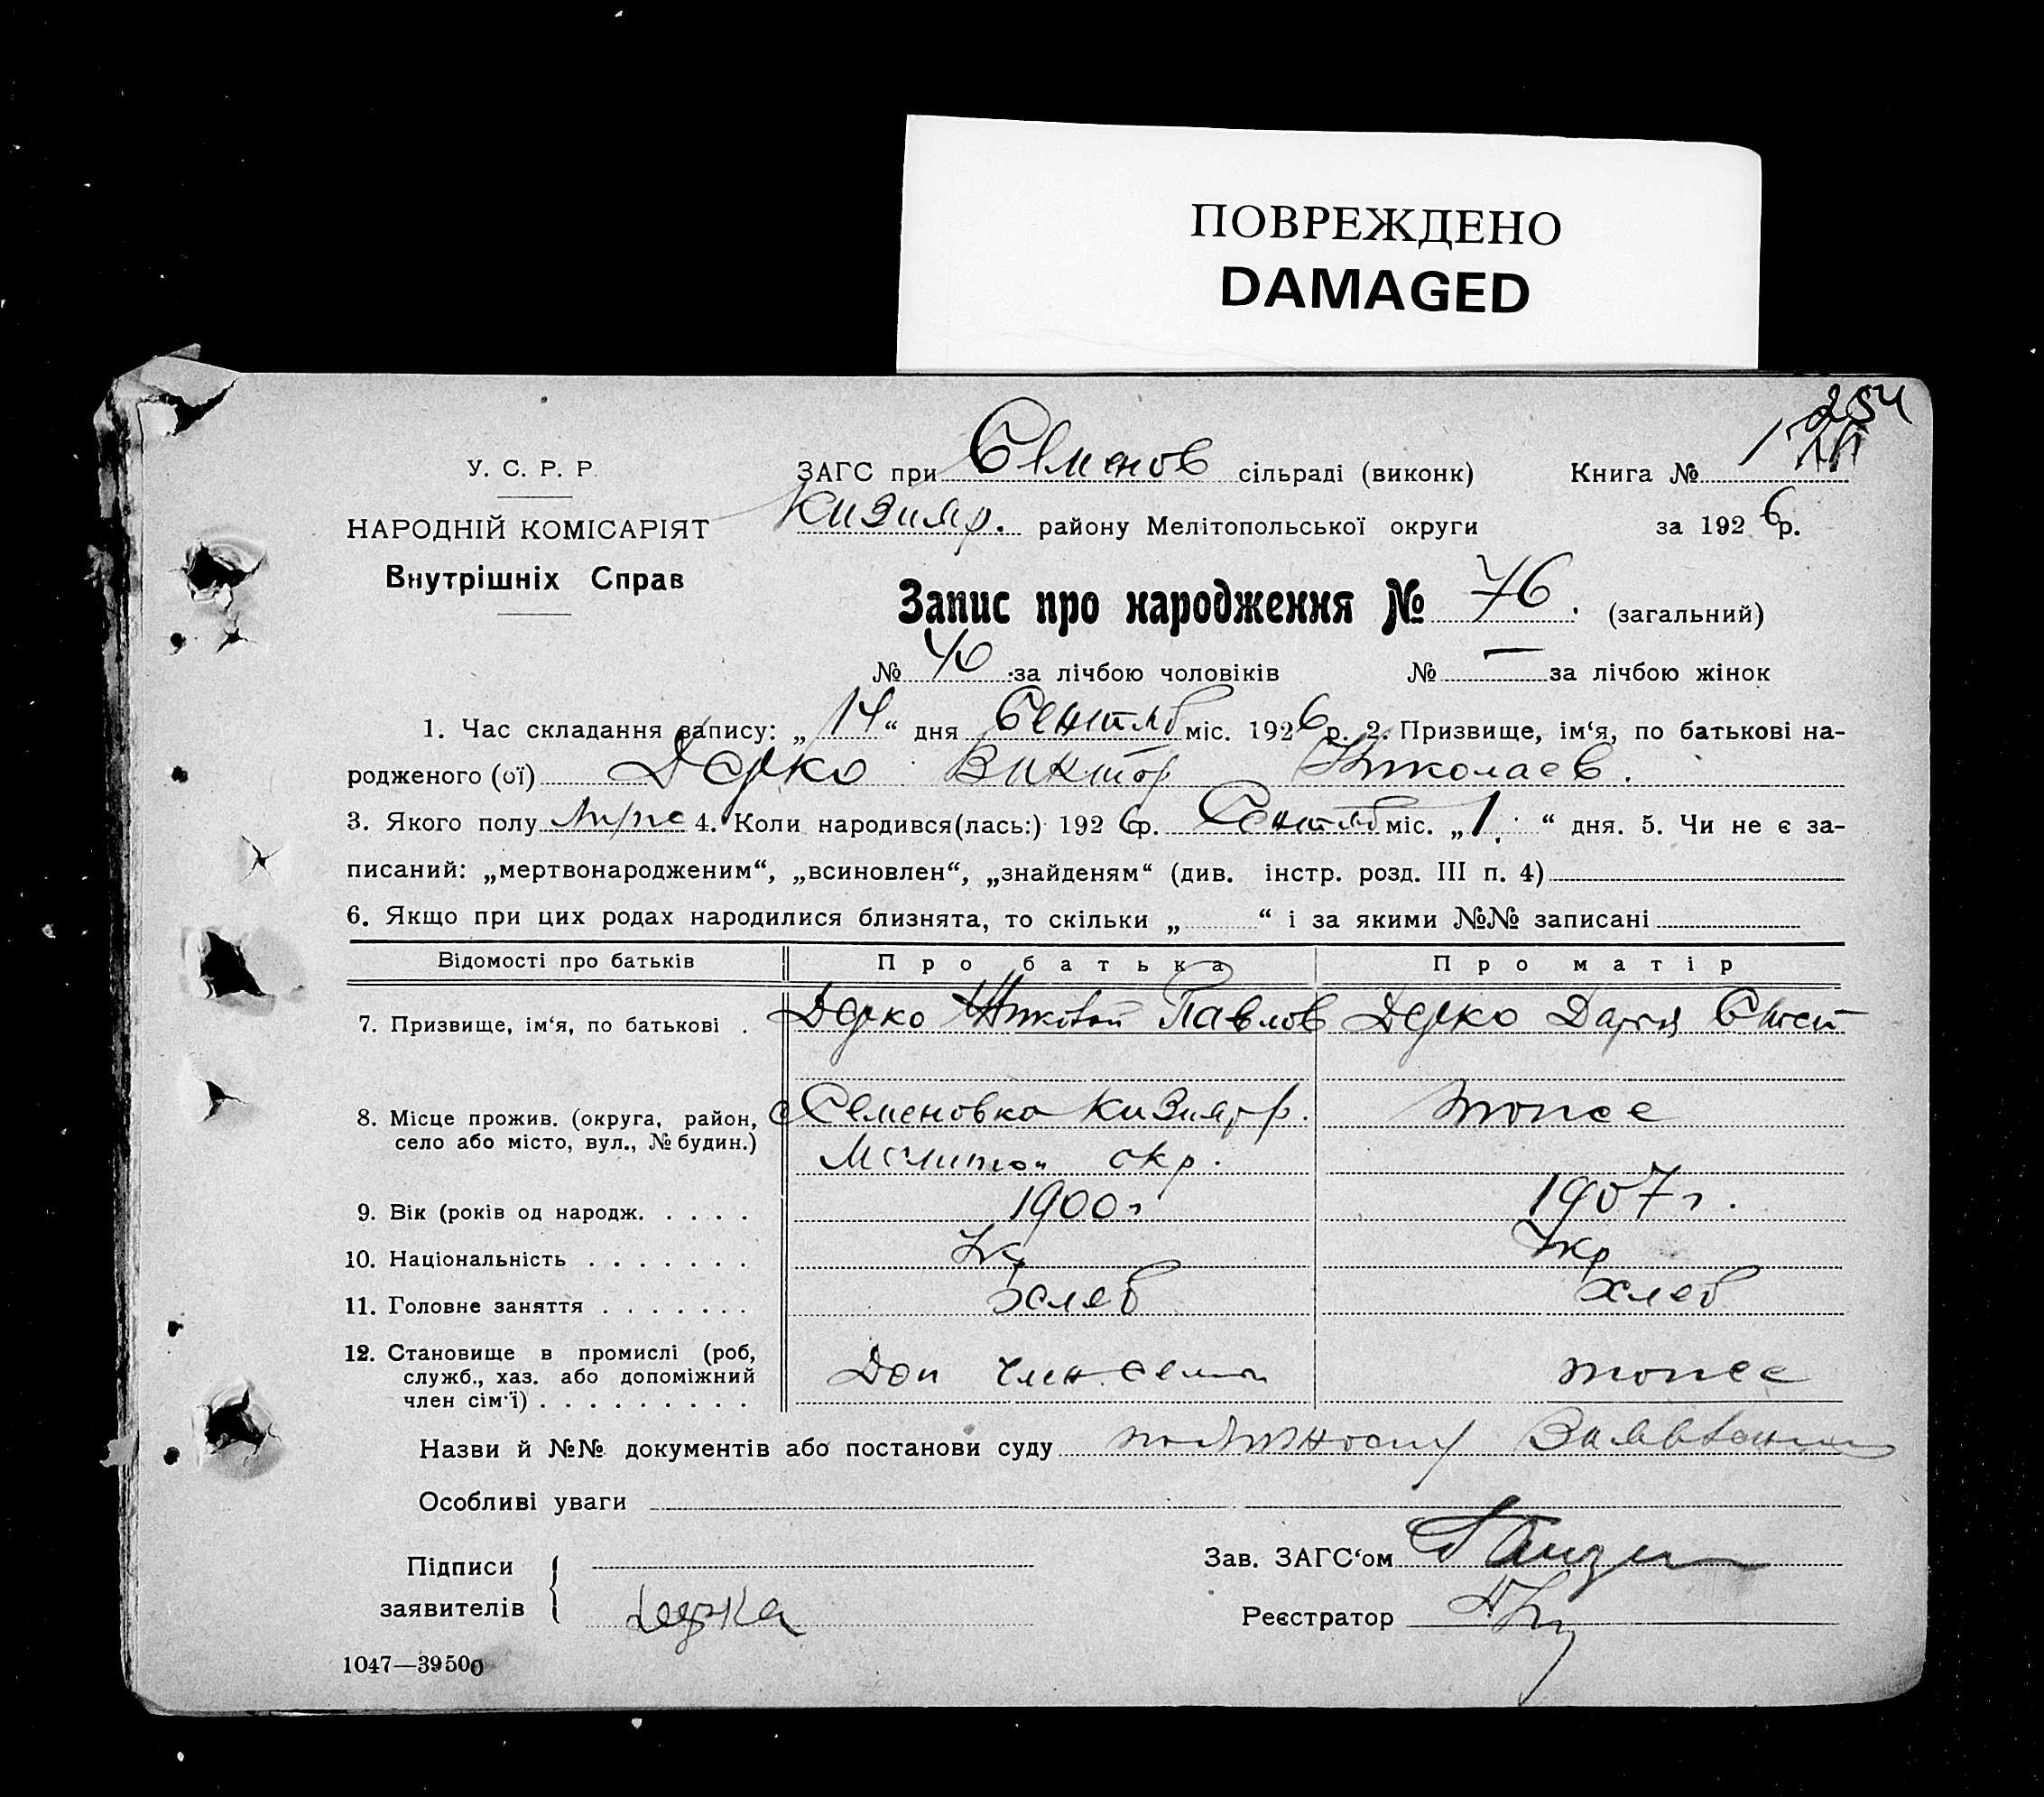 ПОВРЕЖДЕНО
DAMAGED
254
У. С. Р. Р. ЗАГС при Семенов сільраді (виконк) Книга № 1
НАРОДНІЙ КОМІСАРІЯТ Кизияр. району Мелітопольської округи за 1926 р.
Внутрішніх Справ
Запис про народження № 76. (загальний)
№ 40 за лічбою чоловіків № — за лічбою жінок
1. Час складання запису: „14“ дня Сентяб міс. 1926 р. 2. Призвище, ім‘я, по батькові на-
родженого (ої) Дерко Виктор Николаев.
3. Якого полу 4. Коли народився(лась:) 1926 р. Сентяб міс. „1“ дня. 5. Чи не є за-
писаний: „мертвонародженим“, „всиновлен“, „знайденям“ (див. інстр. розд. III п. 4)
6. Якщо при цих родах народилися близнята, то скільки „ “ і за якими №№ записані
Відомості про батьків Про батька Про матір
7. Призвище, ім‘я, по батькові . Дерко Николай Павлов Дерко Дарья
8. Місце прожив. (округа, район, с Семеновка Кизияр р. тоже
село або місто, вул., № будин.) Мелитоп окр.
9. Вік (років од народж. . . . . 1900 г 1907 г.
10. Національність . . . . . . . Укр Укр
11. Головне заняття . . . . . . . хлеб хлеб
12. Становище в промислі (роб,
служб., хаз. або допоміжний Доп член семьи тоже
член сім‘ї) . . . . . . . . .
Назви й №№ документів або постанови суду
Особливі уваги
Підписи Зав. ЗАГС‘ом
заявителів Дерка Реєстратор
1047—39500